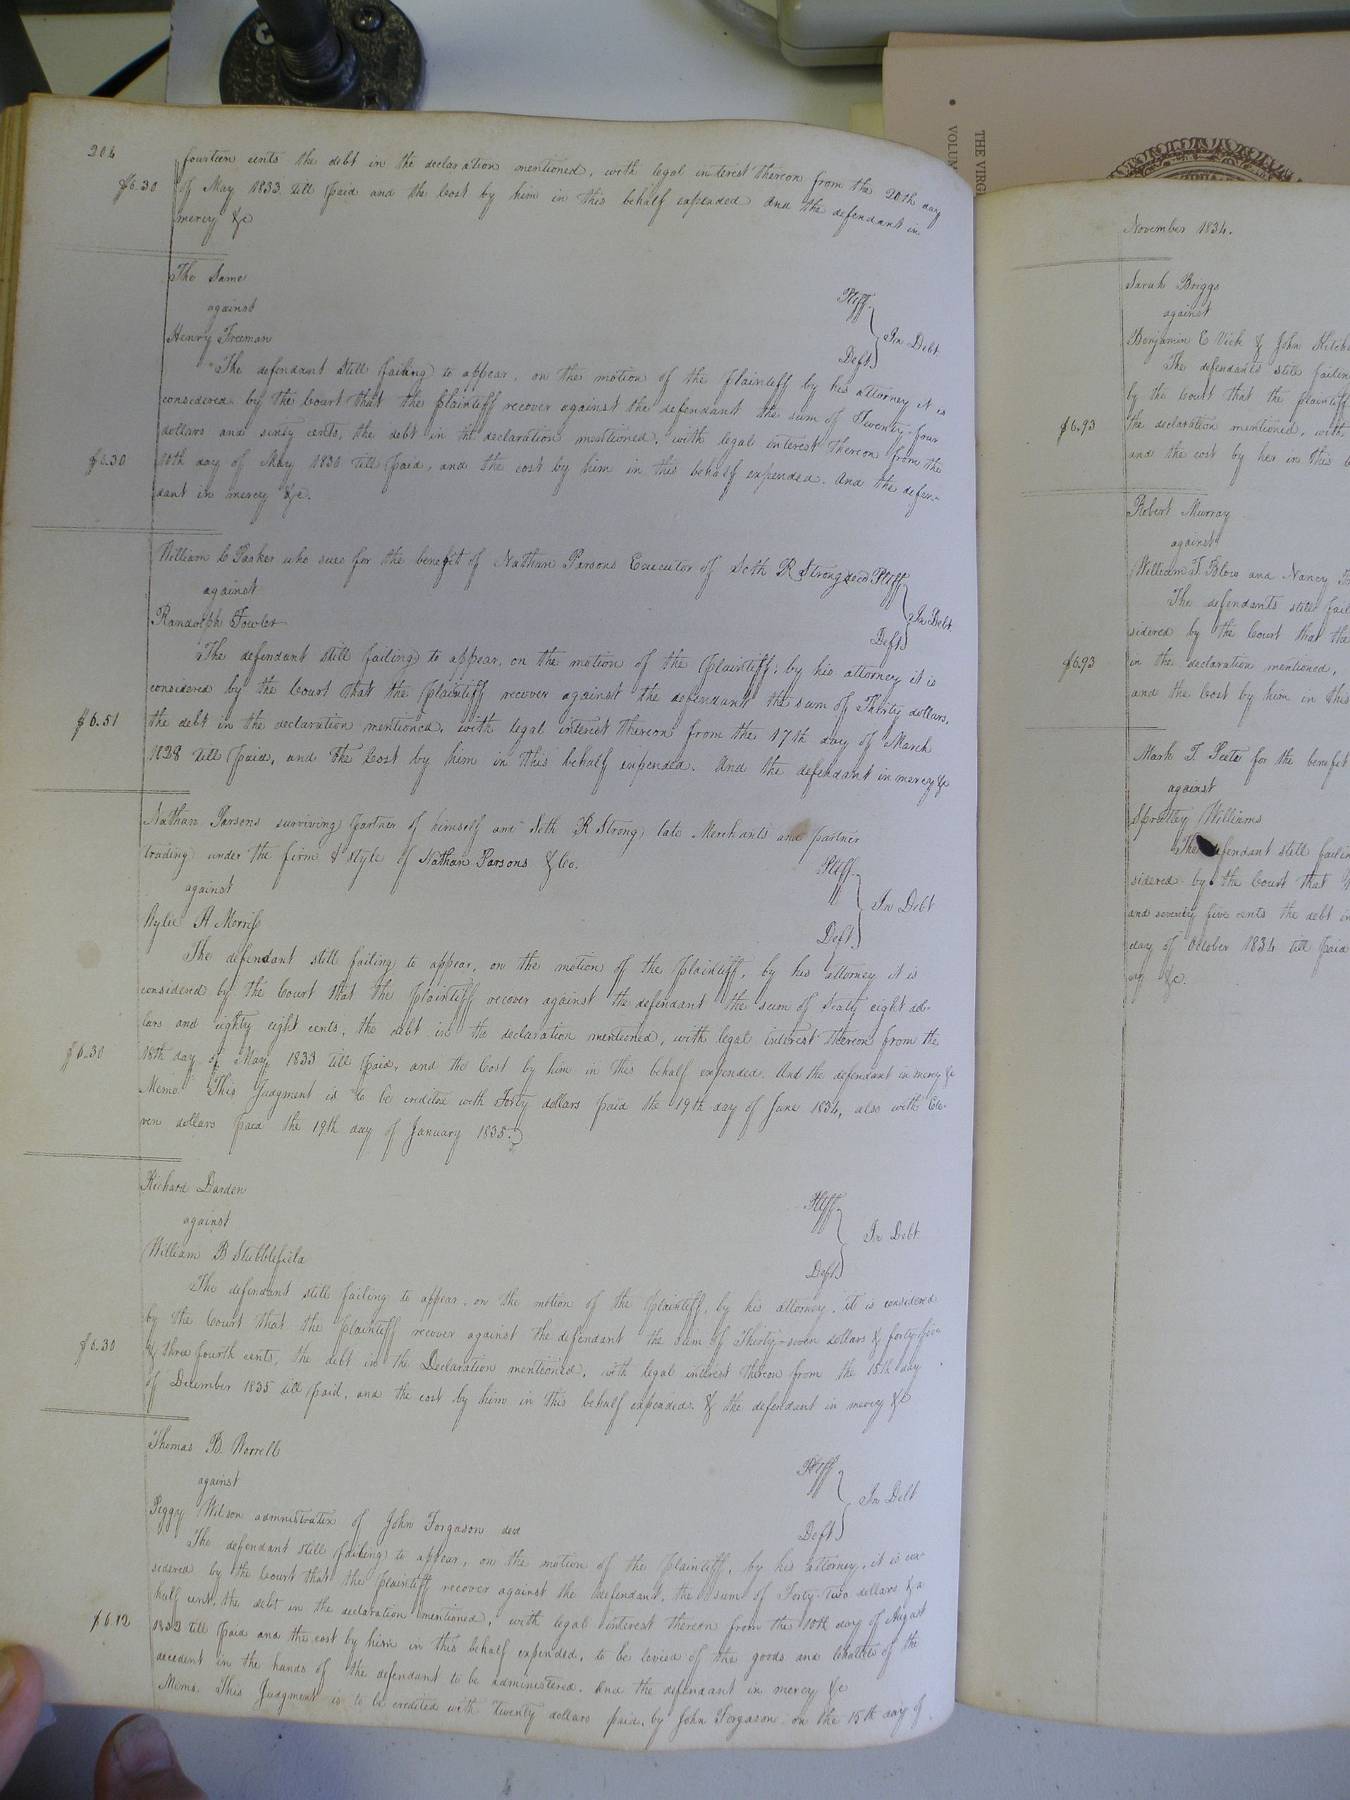 206
fourteen cents the debt in the declaration mentioned, with legal interest thereon from the 20th day
$6.30 of May 1833 till paid and the Cost by him in this behalf expended And the defendant in
mercy &c
The Same Pltff
against In Debt
Henry Freeman Deft
The defendant still failing to appear, on the motion of the plaintiff by his attorney it is
considered by the Court that the plaintiff recover against the defendant the sum of Twenty-four
dollars and sixty cents, the debt in the declaration mentioned, with legal interest thereon from the
$6.30 10th day of May 1830 till paid, and the cost by him in this behalf expended. And the defen-
dant in mercy &c.
William C Parker who sues for the benefit of Nathan Parsons Executor of Seth R Strong decd Pltff
against In Debt
Randolph Fowler Deft
The defendant still failing to appear, on the motion of the plaintiff, by his attorney it is
considered by the Court that the plaintiff recover against the defendant the sum of Thirty dollars,
$6.51 the debt in the declaration mentioned, with legal interest thereon from the 17th day of March
1828 till paid, and the Cost by him in this behalf expended. And the defendant in mercy &c
Nathan Parsons surviving partner of himself and Seth R Strong late Merchants and partner
trading under the firm & style of Nathan Parsons & Co. Pltff
against In Debt
Wylie A Morriss Deft
The defendant still failing to appear, on the motion of the plaintiff, by his attorney it is
considered by the Court that the plaintiff recover against the defendant the sum of Sixty eight dol-
lars and eighty eight cents, the debt in the declaration mentioned, with legal interest thereon from the
$6.30 18th day of May 1833 till paid, and the Cost by him in this behalf expended. And the defendant in mercy &c
Memo. This Judgment is to be credited with Forty dollars paid the 19th day of June 1834, also with Ele-
ven dollars paid the 19th day of January 1835.
Richard Darden Pltff
against In Debt
William B Stubblefield Deft
The defendant still failing to appear, on the motion of the plaintiff, by his attorney, it is considered
by the Court that the plaintiff recover against the defendant the sum of Thirty-seven dollars & forty five
$6.30 & three fourth cents, the debt in the Declaration mentioned, with legal interest thereon from the 15th day
of December 1835 till paid, and the cost by him in this behalf expended. & the defendant in mercy &c
Thomas B. Worrell Pltff
against In Debt
Peggy Wilson administratrix of John Forgason decd Deft
The defendant still failing to appear, on the motion of the plaintiff, by his attorney, it is con-
sidered by the Court that the plaintiff recover against the defendant, the sum of Forty-two dollars & a
half cent, the debt in the declaration mentioned, with legal interest thereon from the 10th day of August
$6.12 1832 till paid and the cost by him in this behalf expended, to be levied of the goods and chattels of the
decedent in the hands of the defendant to be administered. And the defendant in mercy &c
Memo. This Judgment is to be credited with twenty dollars paid, by John Forgason on the 15th day of
THE VIRG
VOLUM
November 1834.
Sarah Briggs
against
Benjamin E Vick & John Kitche
The defendants still failin
by the Court that the plaintiff
$6.93 the declaration mentioned, with
and the cost by her in this b
Robert Murray
against
William T. Blow and Nancy
The defendants still fail
sidered by the Court that the
$6.93 in the declaration mentioned,
and the Cost by him in this
Mark T. Peete for the benefit
against
Spratley Williams
The defendant still failin
sidered by the Court that
and seventy five cents the debt in
day of October 1834 till paid
cy &c.